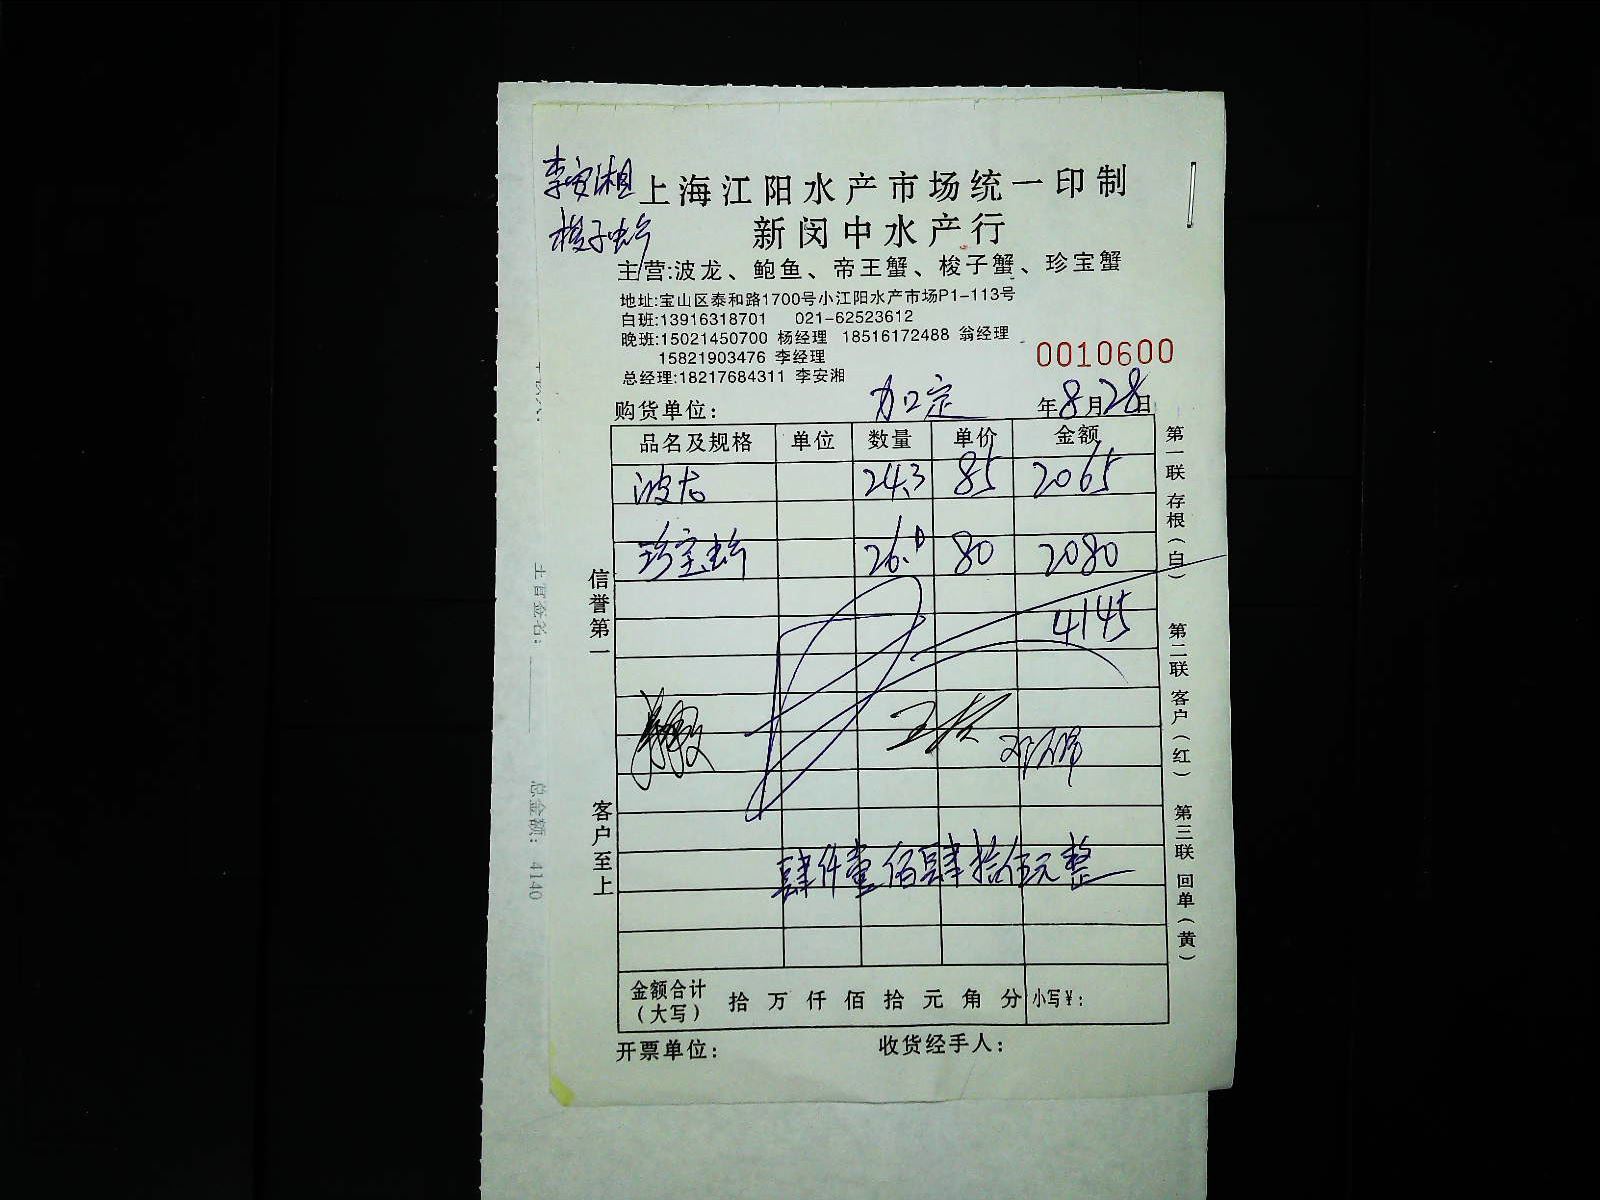 李安湘
梭子蟹
上海江阳水产市场统一印制
新闵中水产行
主营:波龙、鲍鱼、帝王蟹、梭子蟹、珍宝蟹
地址:宝山区泰和路1700号小江阳水产市场P1-113号
白班:13916318701 021-62523612
晚班:15021450700 杨经理 18516172488 翁经理
15821903476 李经理
总经理:18217684311 李安湘
0010600
购货单位: 加口定 年8月28日
品名及规格 单位 数量 单价 金额
波龙 24.3 85 2065
珍宝蟹 26.0 80 2080
4145
肆仟壹佰肆拾伍元整
金额合计(大写) 拾 万 仟 佰 拾 元 角 分 小写¥:
开票单位: 收货经手人:
信誉第一
客户至上
第一联 存根(白)
第二联 客户(红)
第三联 回单(黄)
总金额: 4140